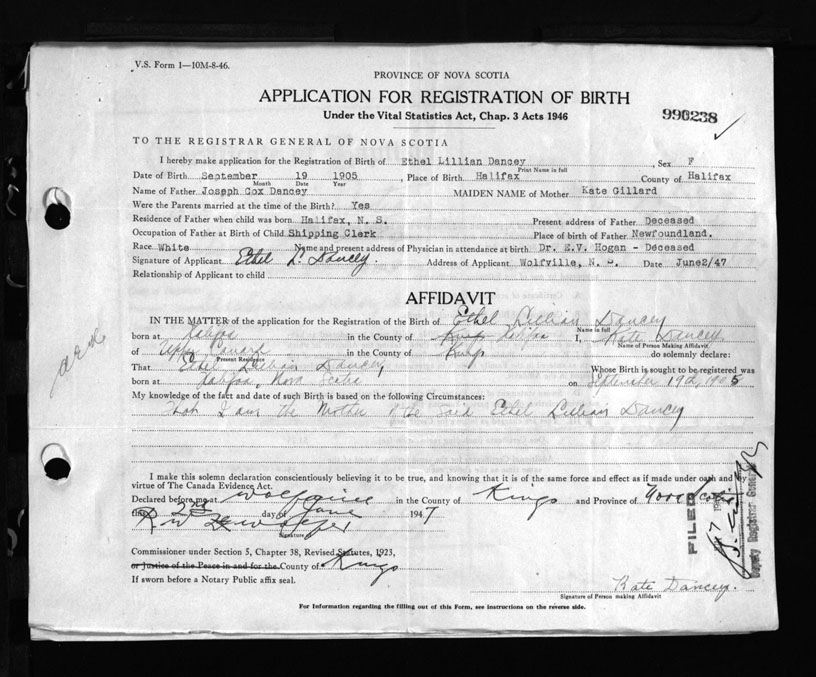 V.S. Form 1—10M-8-46.
PROVINCE OF NOVA SCOTIA
APPLICATION FOR REGISTRATION OF BIRTH
Under the Vital Statistics Act, Chap. 3 Acts 1946
990238
TO THE REGISTRAR GENERAL OF NOVA SCOTIA
I hereby make application for the Registration of Birth of Ethel Lillian Dancey, Sex F
Print Name in full
Date of Birth September 19 1905, Place of Birth Halifax County of Halifax
Month Date Year
Name of Father Joseph Cox Dancey MAIDEN NAME of Mother Kate Gillard
Were the Parents married at the time of the Birth? Yes
Residence of Father when child was born Halifax, N. S. Present address of Father Deceased
Occupation of Father at Birth of Child Shipping Clerk Place of birth of Father Newfoundland.
Race White Name and present address of Physician in attendance at birth Dr. E.V. Hogan - Deceased
Signature of Applicant Ethel L. Dancey. Address of Applicant Wolfville, N. S. Date June2/47
Relationship of Applicant to child
AFFIDAVIT
IN THE MATTER of the application for the Registration of Birth of Ethel Lillian Dancey
Name in full
born at Halifax in the County of Kings Halifax I, Kate Dancey
Name of Person Making Affidavit
of Upper Canard in the County of Kings do solemnly declare:
Present Residence
That Ethel Lillian Dancey Whose Birth is sought to be registered was
born at Halifax, Nova Scotia on September 19th, 1905
My knowledge of the fact and date of such Birth is based on the following Circumstances:
That I am the Mother of the said Ethel Lillian Dancey
I make this solemn declaration conscientiously believing it to be true, and knowing that it is of the same force and effect as if made under oath and by
virtue of The Canada Evidence Act.
Declared before me at Wolfville in the County of Kings and Province of Nova Scotia
this 2nd day of June 1947
Signature
Commissioner under Section 5, Chapter 38, Revised Statutes, 1923,
or Justice of the Peace in and for the County of Kings
If sworn before a Notary Public affix seal.
FILED
Deputy Registrar General
Kate Dancey.
Signature of Person making Affidavit
For Information regarding the filling out of this Form, see instructions on the reverse side.